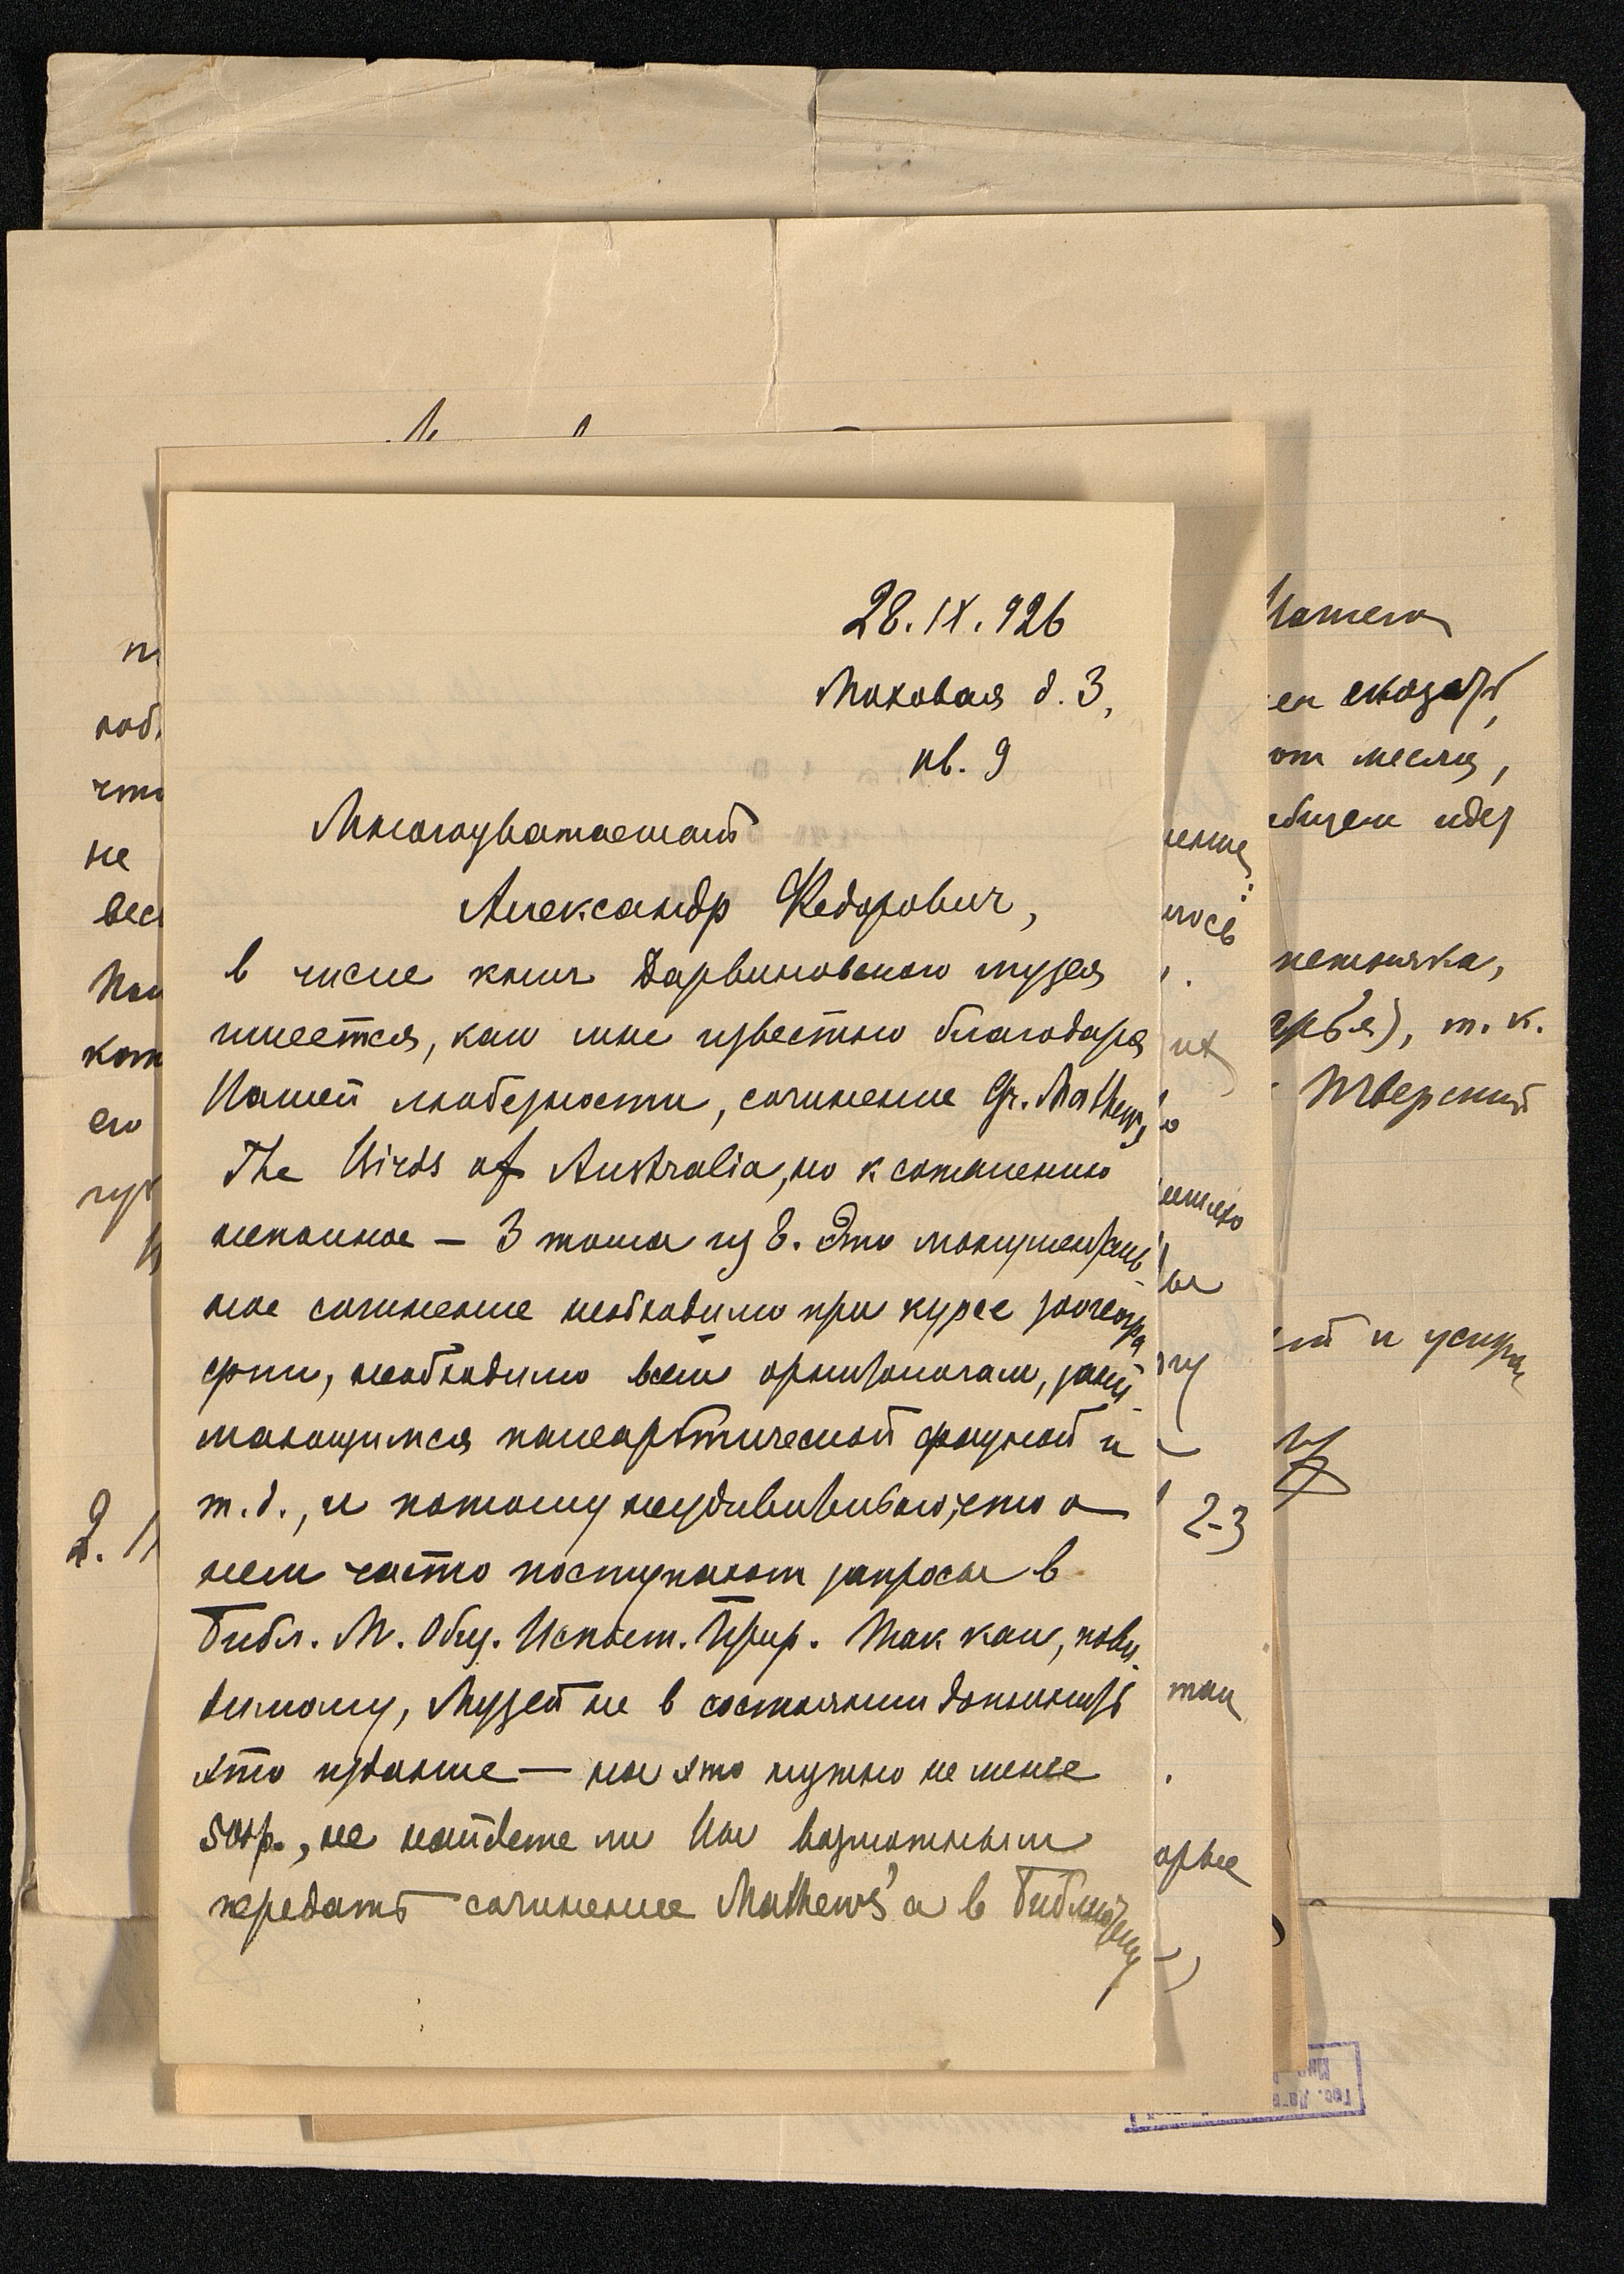 28.IX.926
Моховая д. 3,
кв. 9
Многоуважаемый
Александр Федорович,
в числе книг Дарвиновского музея
имеется, как мне известно благодаря
Вашей любезности, сочинение Gr. Mathews
The Birds of Australia, но к сожалению
неполное — 3 тома из 8. Это монументаль-
ное сочинение необходимо при курсе зоогеогра
фии, необходимо всем орнитологам, зани-
мающимся палеарктической фауной и
т.д., и потому неудивительно, что о
нем часто поступают запросы в
Библ. М. Общ. Испыт. Прир. Так как, пови-
димому, Музей не в состоянии дополнить
это издание — на это нужно не менее
500 р., не найдете ли Вы возможным
передать сочинение Mathews'а в Библиотеку
что
не
его
2.
2-3
так
сказать,
месяц,
идет
т. к.
Тверский